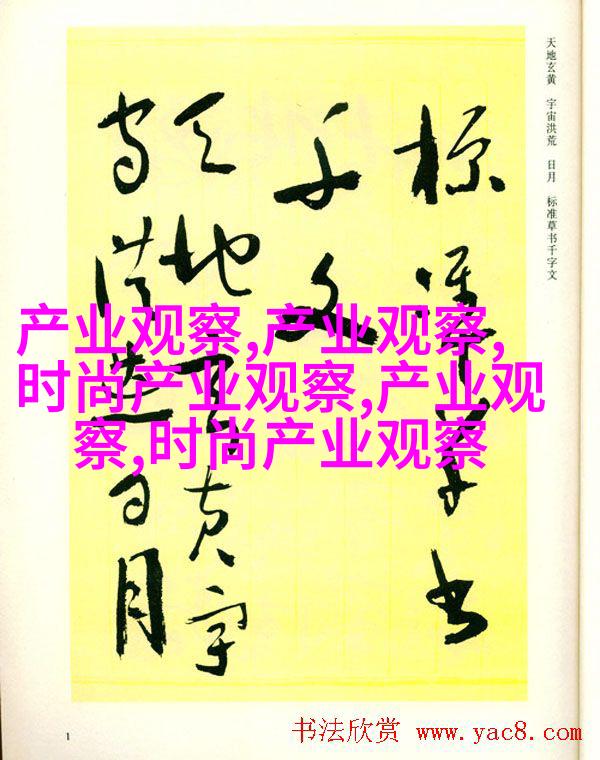 天地玄黄 宇宙洪荒 日月 标准草书千字文
標準草書
千文
天地玄黄宇
宙洪荒日月
产业观察,产业观察,
时尚产业观察,产业观
察,时尚产业观察
1
书法欣赏 www.yac8.com